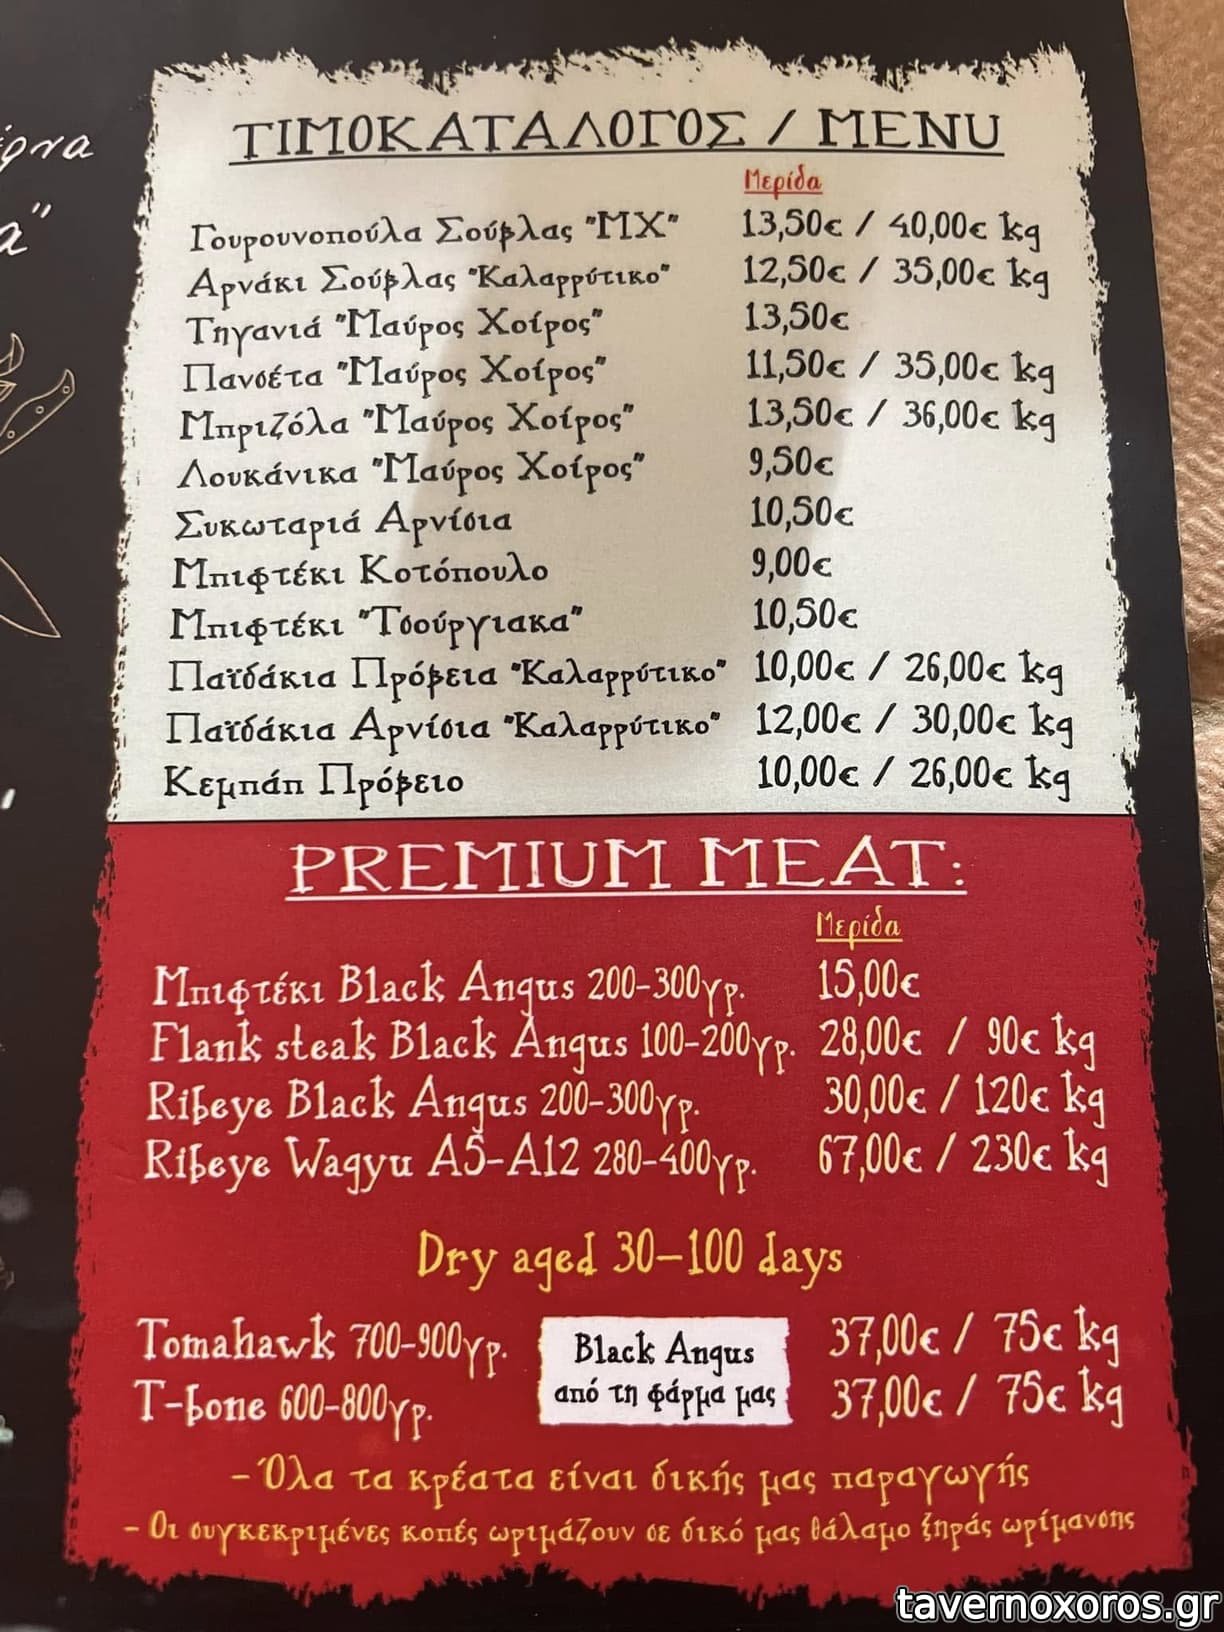 ΤΙΜΟΚΑΤΑΛΟΓΟΣ / MENU
Μερίδα
Γουρουνοπούλα Σούβλας "ΜΧ" 13,50€ / 40,00€ kg
Αρνάκι Σούβλας "Καλαρρύτικο" 12,50€ / 35,00€ kg
Τηγανιά "Μαύρος Χοίρος" 13,50€
Πανσέτα "Μαύρος Χοίρος" 11,50€ / 35,00€ kg
Μπριζόλα "Μαύρος Χοίρος" 13,50€ / 36,00€ kg
Λουκάνικα "Μαύρος Χοίρος" 9,50€
Συκωταριά Αρνίσια 10,50€
Μπιφτέκι Κοτόπουλο 9,00€
Μπιφτέκι "Τσούργιακα" 10,50€
Παϊδάκια Πρόβεια "Καλαρρύτικο" 10,00€ / 26,00€ kg
Παϊδάκια Αρνίσια "Καλαρρύτικο" 12,00€ / 30,00€ kg
Κεμπάπ Πρόβειο 10,00€ / 26,00€ kg
PREMIUM MEAT:
Μερίδα
Μπιφτέκι Black Angus 200-300γρ. 15,00€
Flank steak Black Angus 100-200γρ. 28,00€ / 90€ kg
Ribeye Black Angus 200-300γρ. 30,00€ / 120€ kg
Ribeye Wagyu A5-A12 280-400γρ. 67,00€ / 230€ kg
Dry aged 30-100 days
Tomahawk 700-900γρ. 37,00€ / 75€ kg
T-bone 600-800γρ. 37,00€ / 75€ kg
Black Angus
από τη φάρμα μας
- Όλα τα κρέατα είναι δικής μας παραγωγής
- Οι συγκεκριμένες κοπές ωριμάζουν σε δικό μας θάλαμο ξηράς ωρίμανσης
tavernoxoros.gr